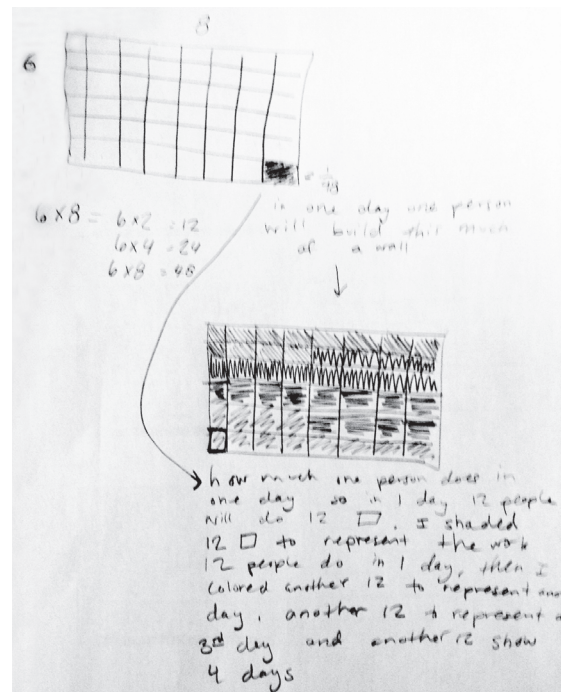 8
6
= 1/48
6x8 = 6x2 = 12
6x4 = 24
6x8 = 48
in one day one person
will build this much
of a wall
how much one person does in
one day so in 1 day 12 people
will do 12 □. I shaded
12 □ to represent the work
12 people do in 1 day, then I
colored another 12 to represent
day, another 12 to represent
3rd day and another 12 show
4 days